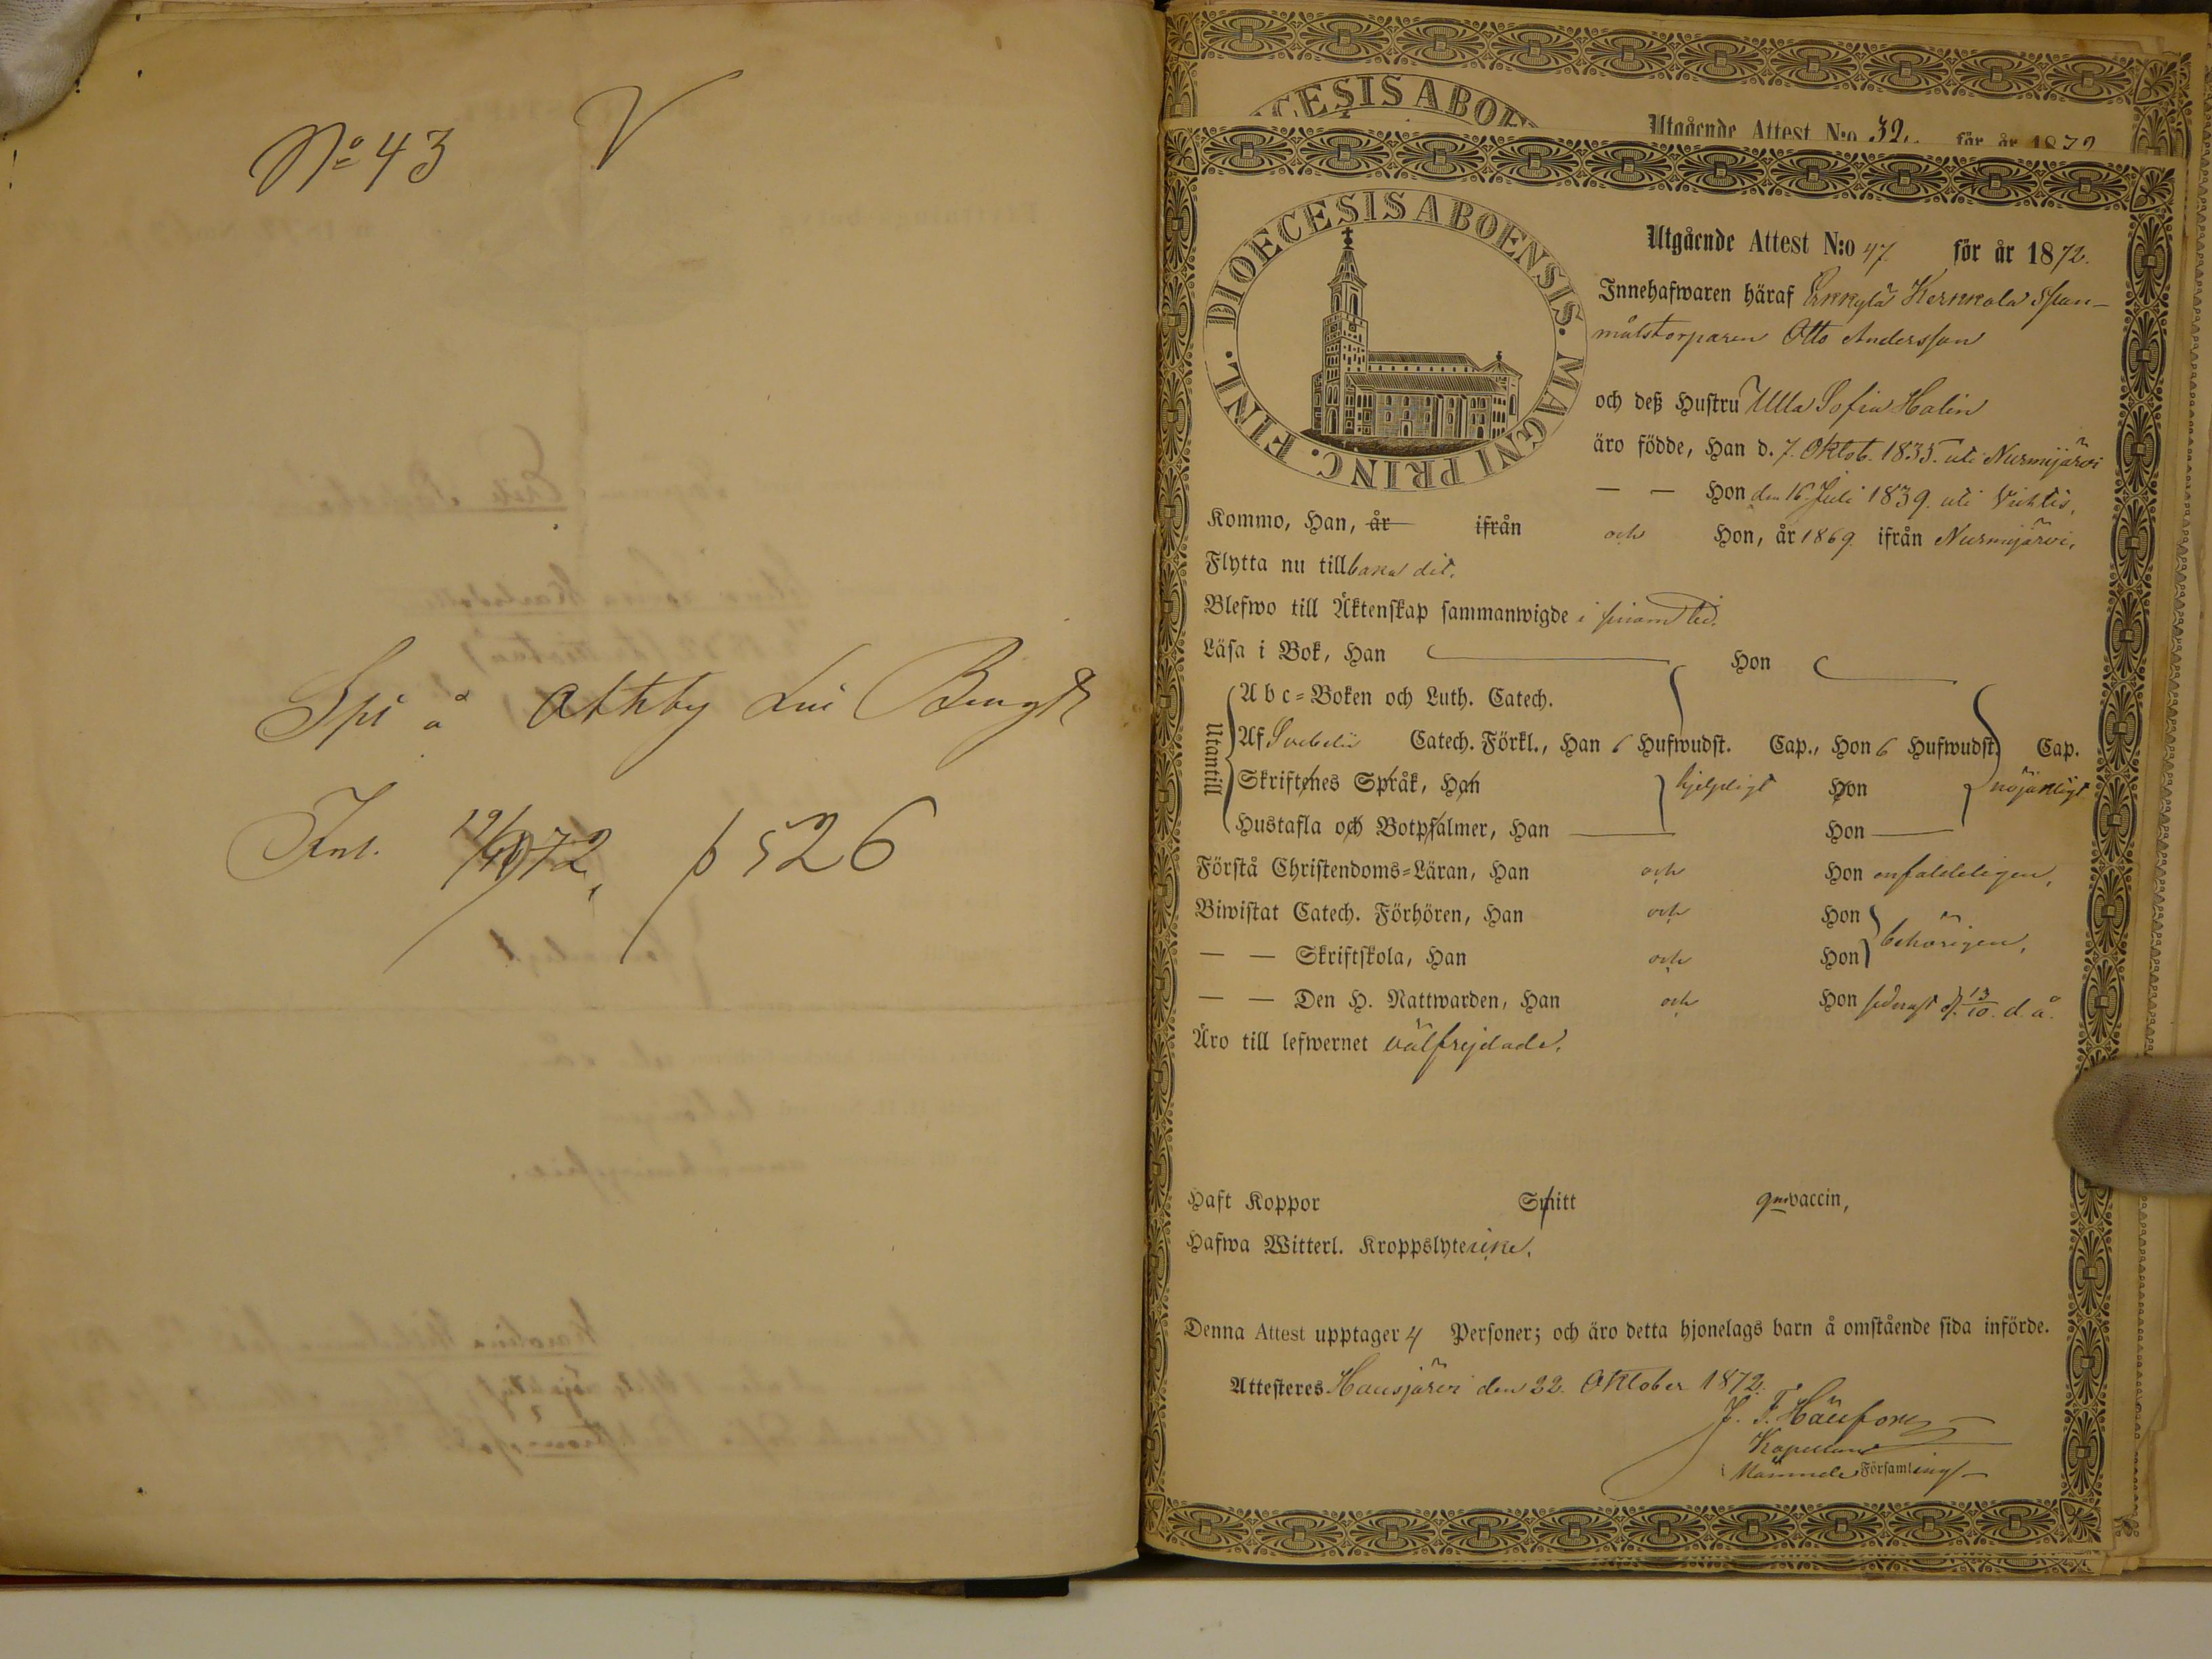 No 43 V
Spi å Attby Lui Bengts
Inl. 12/11 72, p 526
CESIS ABOE
Utgående Attest N:o 32. för år 1872
DIOECESIS ABOENSIS. MAGNI PRINC. FINL.
Utgående Attest N:o 47 för år 1872.
Innehafwaren häraf Erkkylä Kerkkola
målstorparen Otto Andersson
och deß Hustru Ulla Sofia Halin
äro födde, Han d. 7. Oktob. 1835. uti Nurmijärvi
— — Hon den 16 Juli 1839. uti Vichtis,
Kommo, Han, år ifrån och Hon, år 1869. ifrån Nurmijärvi,
Flytta nu tillbaka dit.
Blefwo till Äktenskap sammanwigde i sinom tid.
Läsa i Bok, Han Hon
Utantill
A b c-Boken och Luth. Catech.
Af Svebelii Catech. Förkl., Han 6 Hufwudst. Cap., Hon 6 Hufwudst. Cap.
Skriftenes Språk, Han hjelpligt Hon nöjaktligt
Hustafla och Botpsalmer, Han Hon
Förstå Christendoms-Läran, Han och Hon enfaldeligen,
Biwistat Catech. Förhören, Han och Hon
behörigen,
— — Skriftskola, Han och Hon
— — Den H. Nattwarden, Han och Hon senast d. 13/10. d. å.
Äro till lefwernet välfrejdade.
Haft Koppor Smitt gm vaccin,
Hafwa Witterl. Kroppslyte icke.
Denna Attest upptager 4 Personer; och äro detta hjonelags barn å omstående sida införde.
Attesteras Hausjärvi den 22. Oktober 1872.
J. F.
Kapellan
i Församling